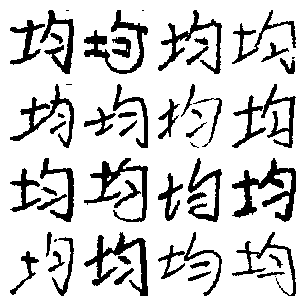 均均均均
均均均均
均均均均
均均均均